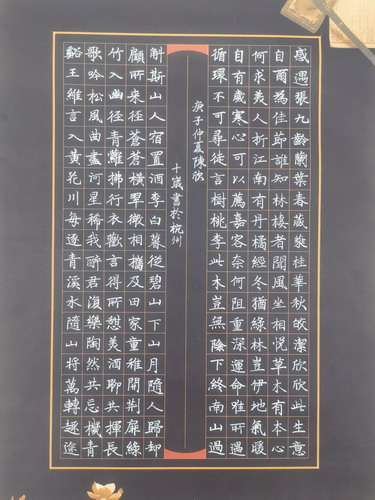 感遇張九齡蘭葉春葳蕤桂華秋皎潔欣欣此生意
自爾為佳節誰知林棲者聞風坐相悅草木有本心
何求美人折江南有丹橘經冬猶綠林豈伊地氣暖
自有歲寒心可以薦嘉客奈何阻重深運命唯所遇
循環不可尋徒言樹桃李此木豈無陰下終南山過
庚子仲夏陳欣
十歲書於杭州
斛斯山人宿置酒李白暮從碧山下山月隨人歸却
顧所來徑蒼蒼橫翠微相攜及田家童稚開荆扉綠
竹入幽徑青蘿拂行衣歡言得所憩美酒聊共揮長
歌吟松風曲盡河星稀我醉君復樂陶然共忘機青
谿王維言入黃花川每逐青溪水隨山將萬轉趣途